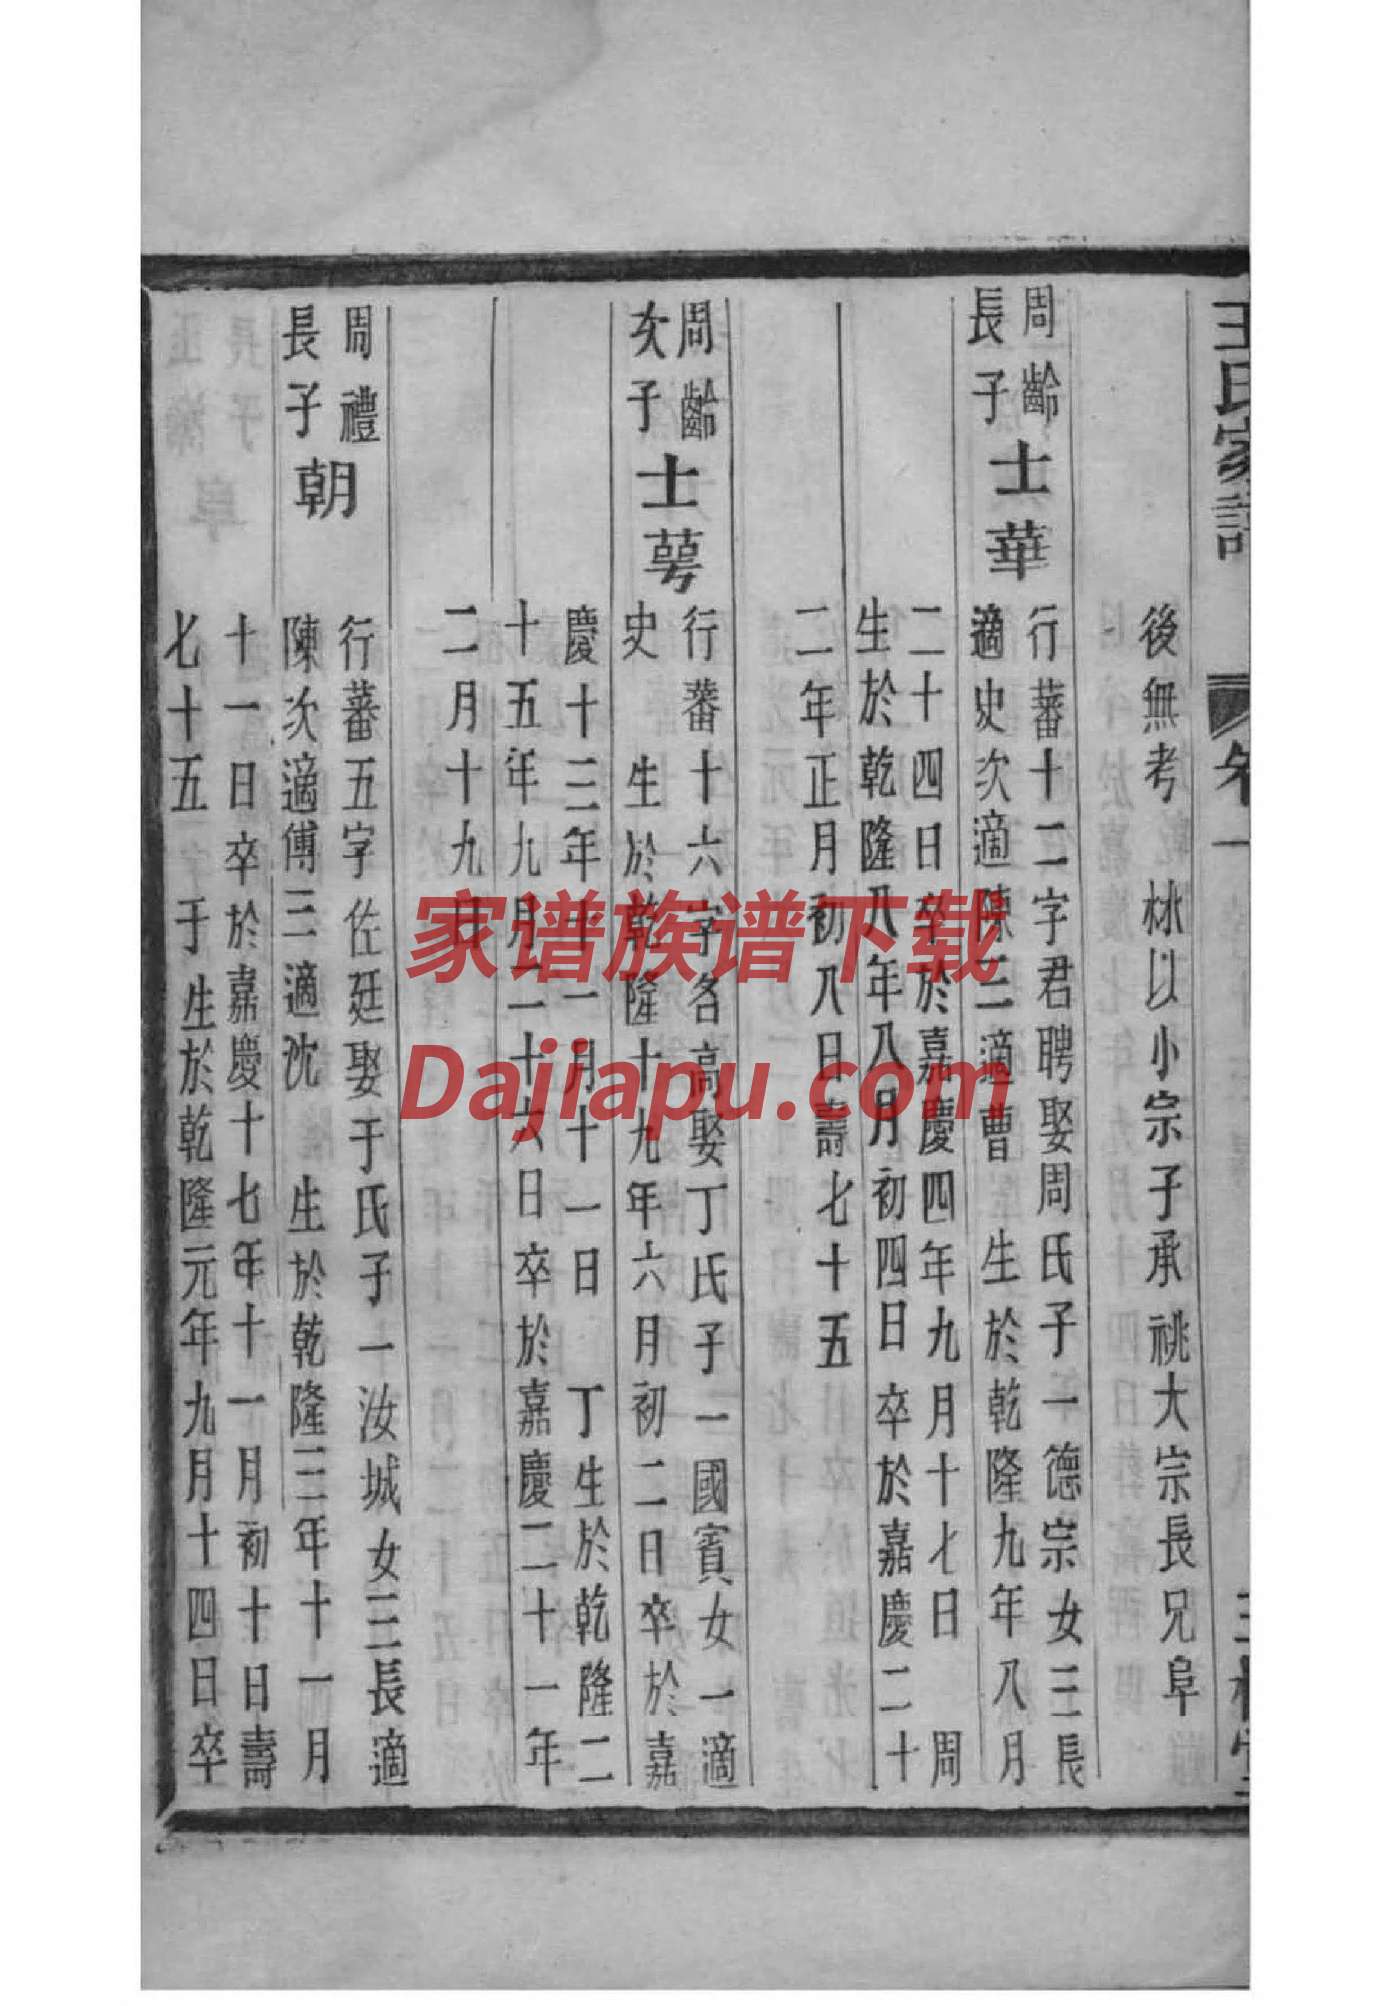 王氏家譜
卷一
後無考 桃以小宗子承祧大宗長兄阜
周齡
長子
士華
行蕃十二字君聘娶周氏子一德宗女三長
適史次適陳三適曹 生於乾隆九年八月
二十四日卒於嘉慶四年九月十七日 周
生於乾隆八年八月初四日卒於嘉慶二十
二年正月初八日壽七十五
周齡
次子
士萼
行蕃十六字名高娶丁氏子一國賓女一適
史 生於乾隆十九年六月初二日卒於嘉
慶十三年十一月十一日 丁生於乾隆二
十五年九月二十六日卒於嘉慶二十一年
二月十九日
周禮
長子
朝
行蕃五字佐廷娶于氏子一汝城女三長適
陳次適傅三適沈 生於乾隆三年十一月
十一日卒於嘉慶十七年十一月初十日壽
七十五 于生於乾隆元年九月十四日卒
家谱族谱下载
Dajiapu.com